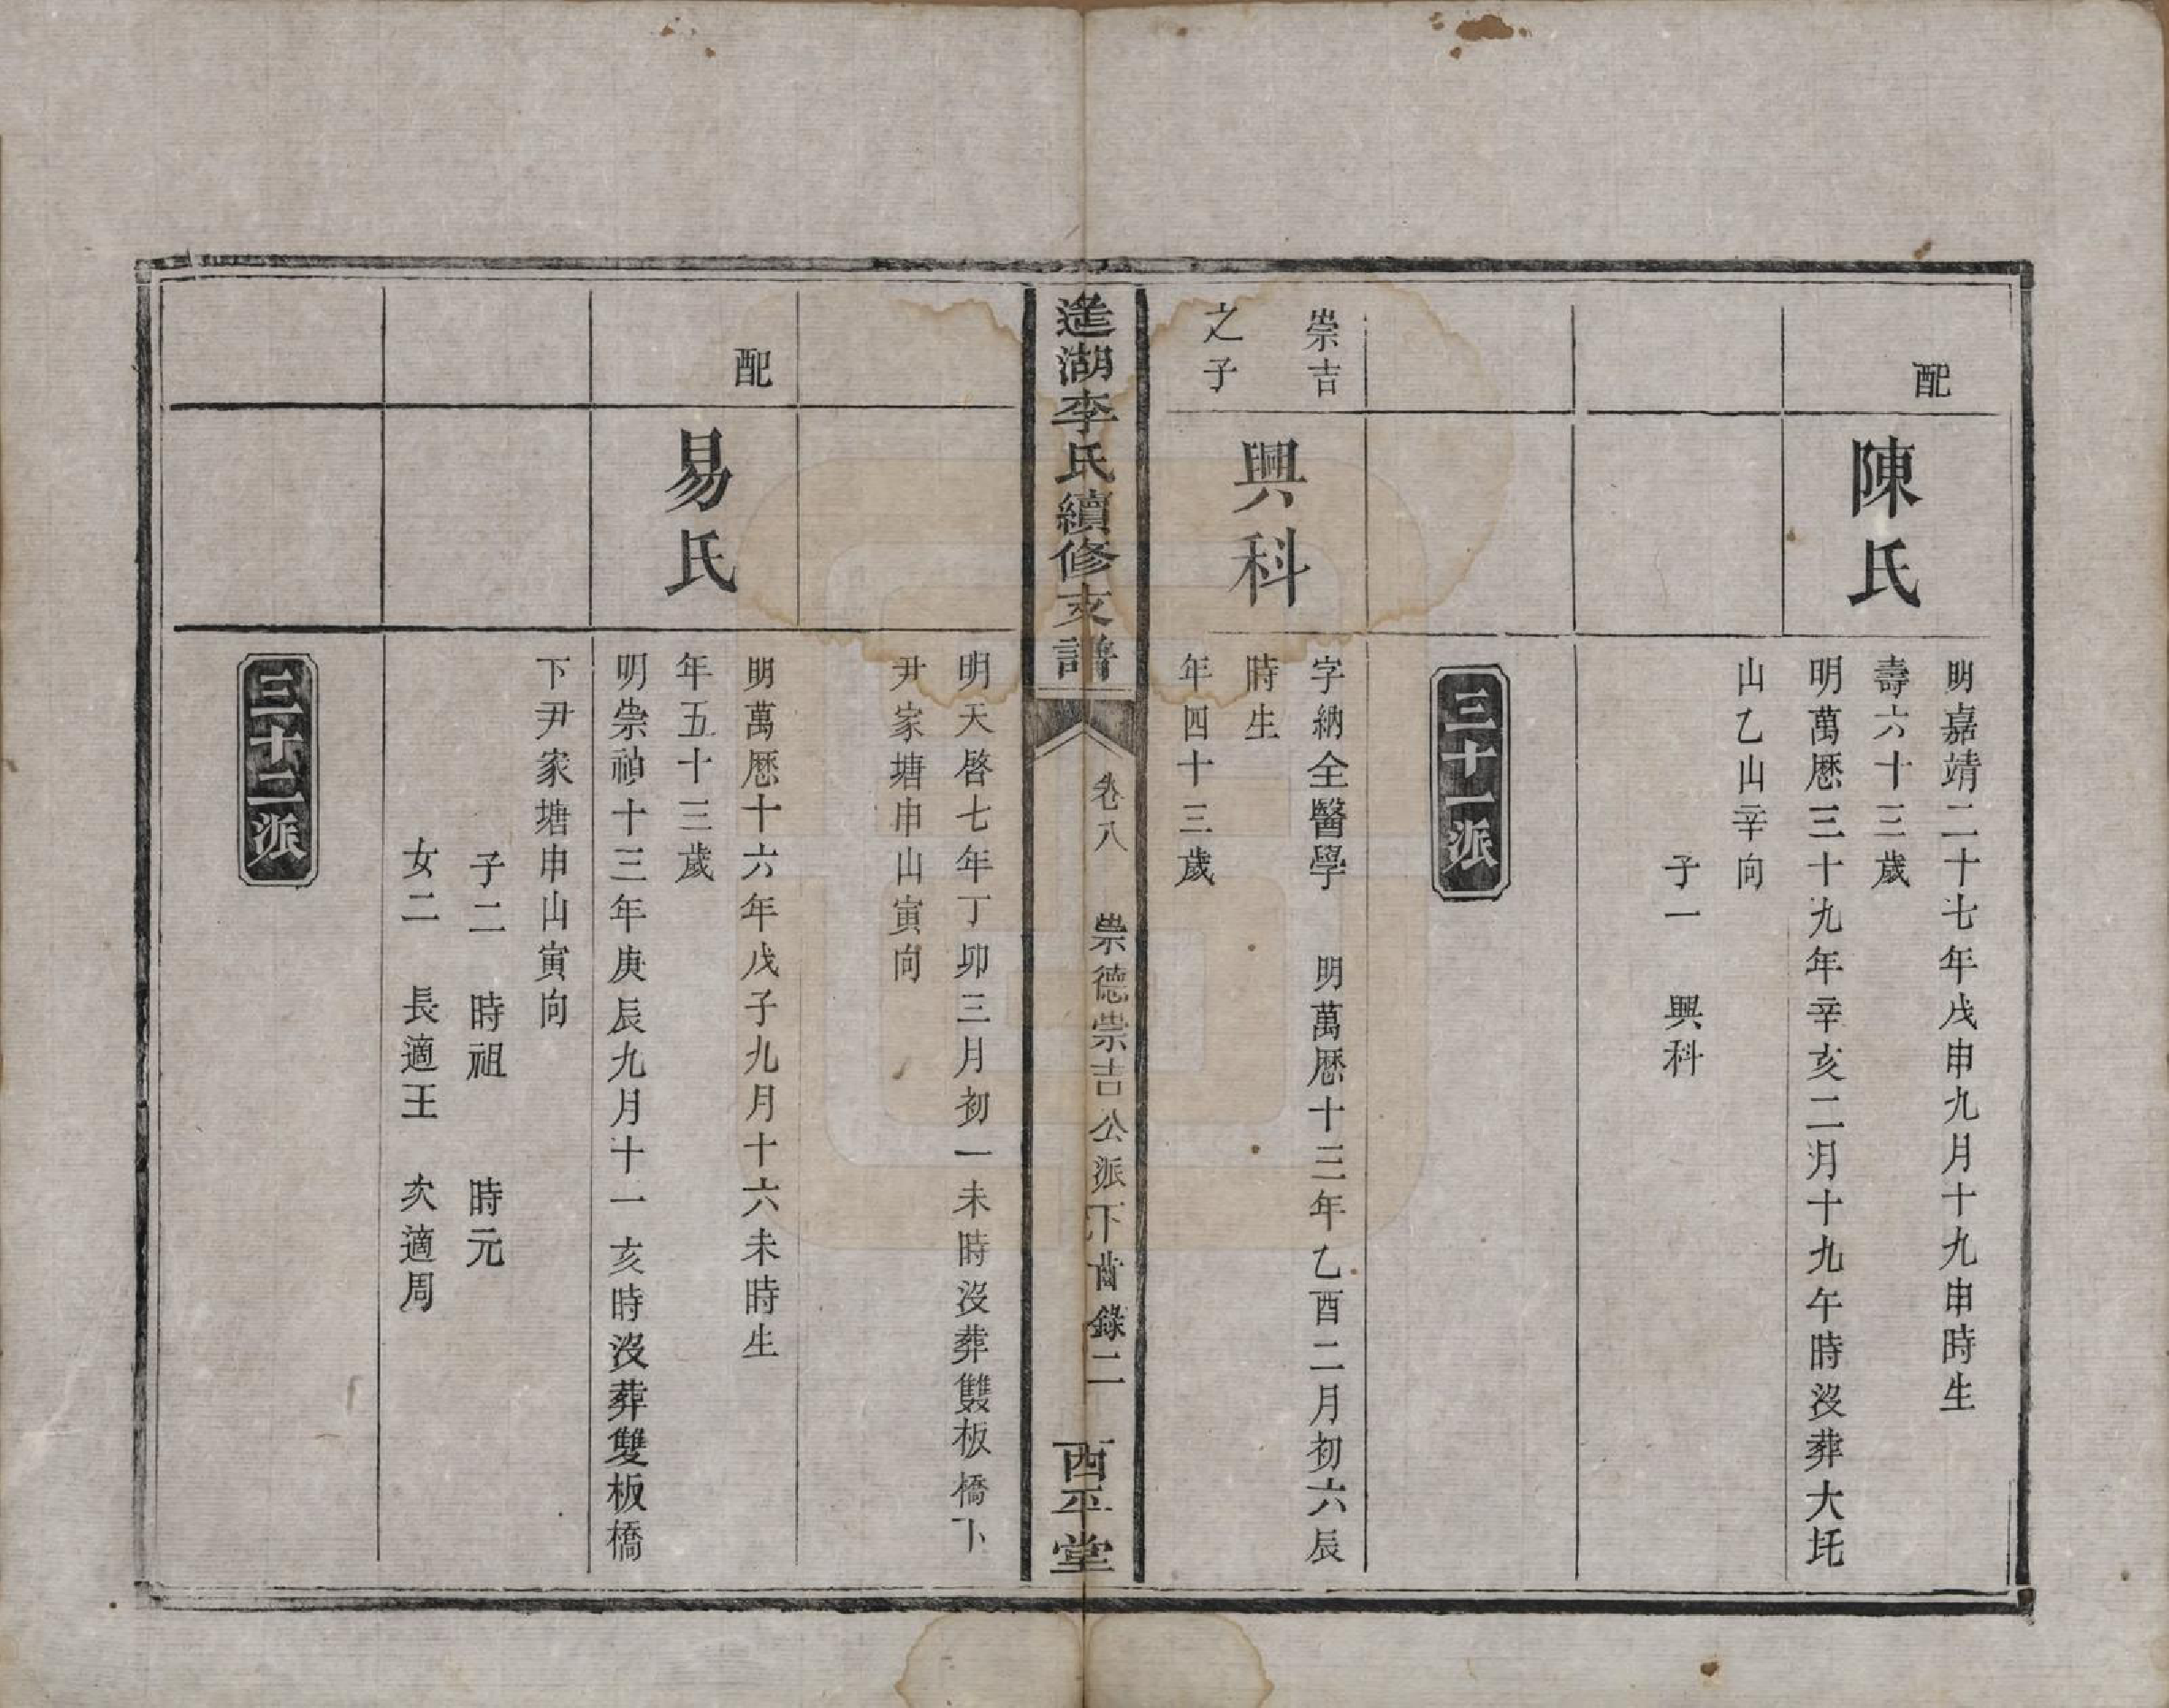 配
陳氏
明嘉靖二十七年戊申九月十九申時生
壽六十三歲
明萬歷三十九年辛亥二月十九午時沒葬大圫
山乙山辛向
子一 興科
三十一派
崇吉
之子
興科
字納全醫學 明萬歷十三年乙酉二月初六辰
時生
年四十三歲
湖李氏續修支譜
卷八 崇德崇吉公派下齒錄二
西平堂
明天啓七年丁卯三月初一未時沒葬雙板橋下
尹家塘申山寅向
配
易氏
明萬歷十六年戊子九月十六未時生
年五十三歲
明崇禎十三年庚辰九月十一亥時沒葬雙板橋
下尹家塘申山寅向
子二 時祖 時元
女二 長適王 次適周
三十二派